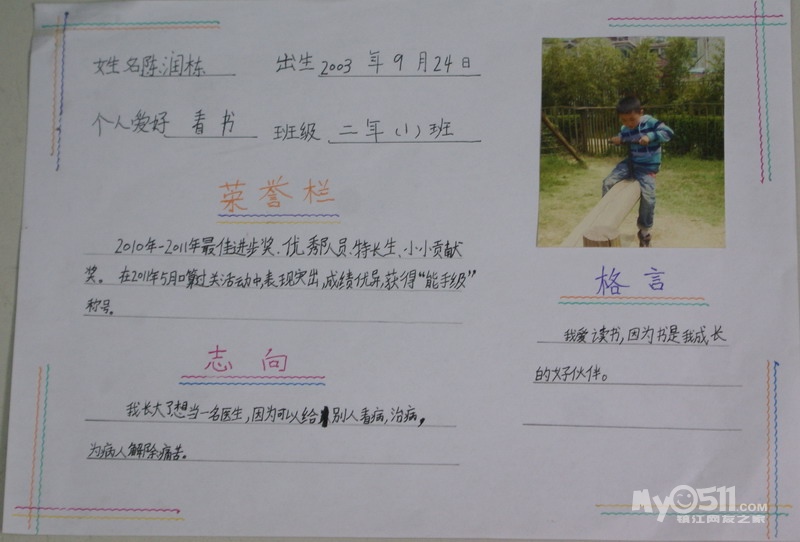 姓名陈润栋 出生2003年9月24日
个人爱好 看书 班级 二年(1)班
荣誉栏
2010年-2011年最佳进步奖、优秀队员、特长生、小小贡献
奖。在2011年5月口算过关活动中,表现突出,成绩优异,获得“能手级”
称号。
志向
我长大了想当一名医生,因为可以给别人看病,治病,
为病人解除痛苦。
格言
我爱读书,因为书是我成长
的好伙伴。
My0511.COM
镇江网友之家